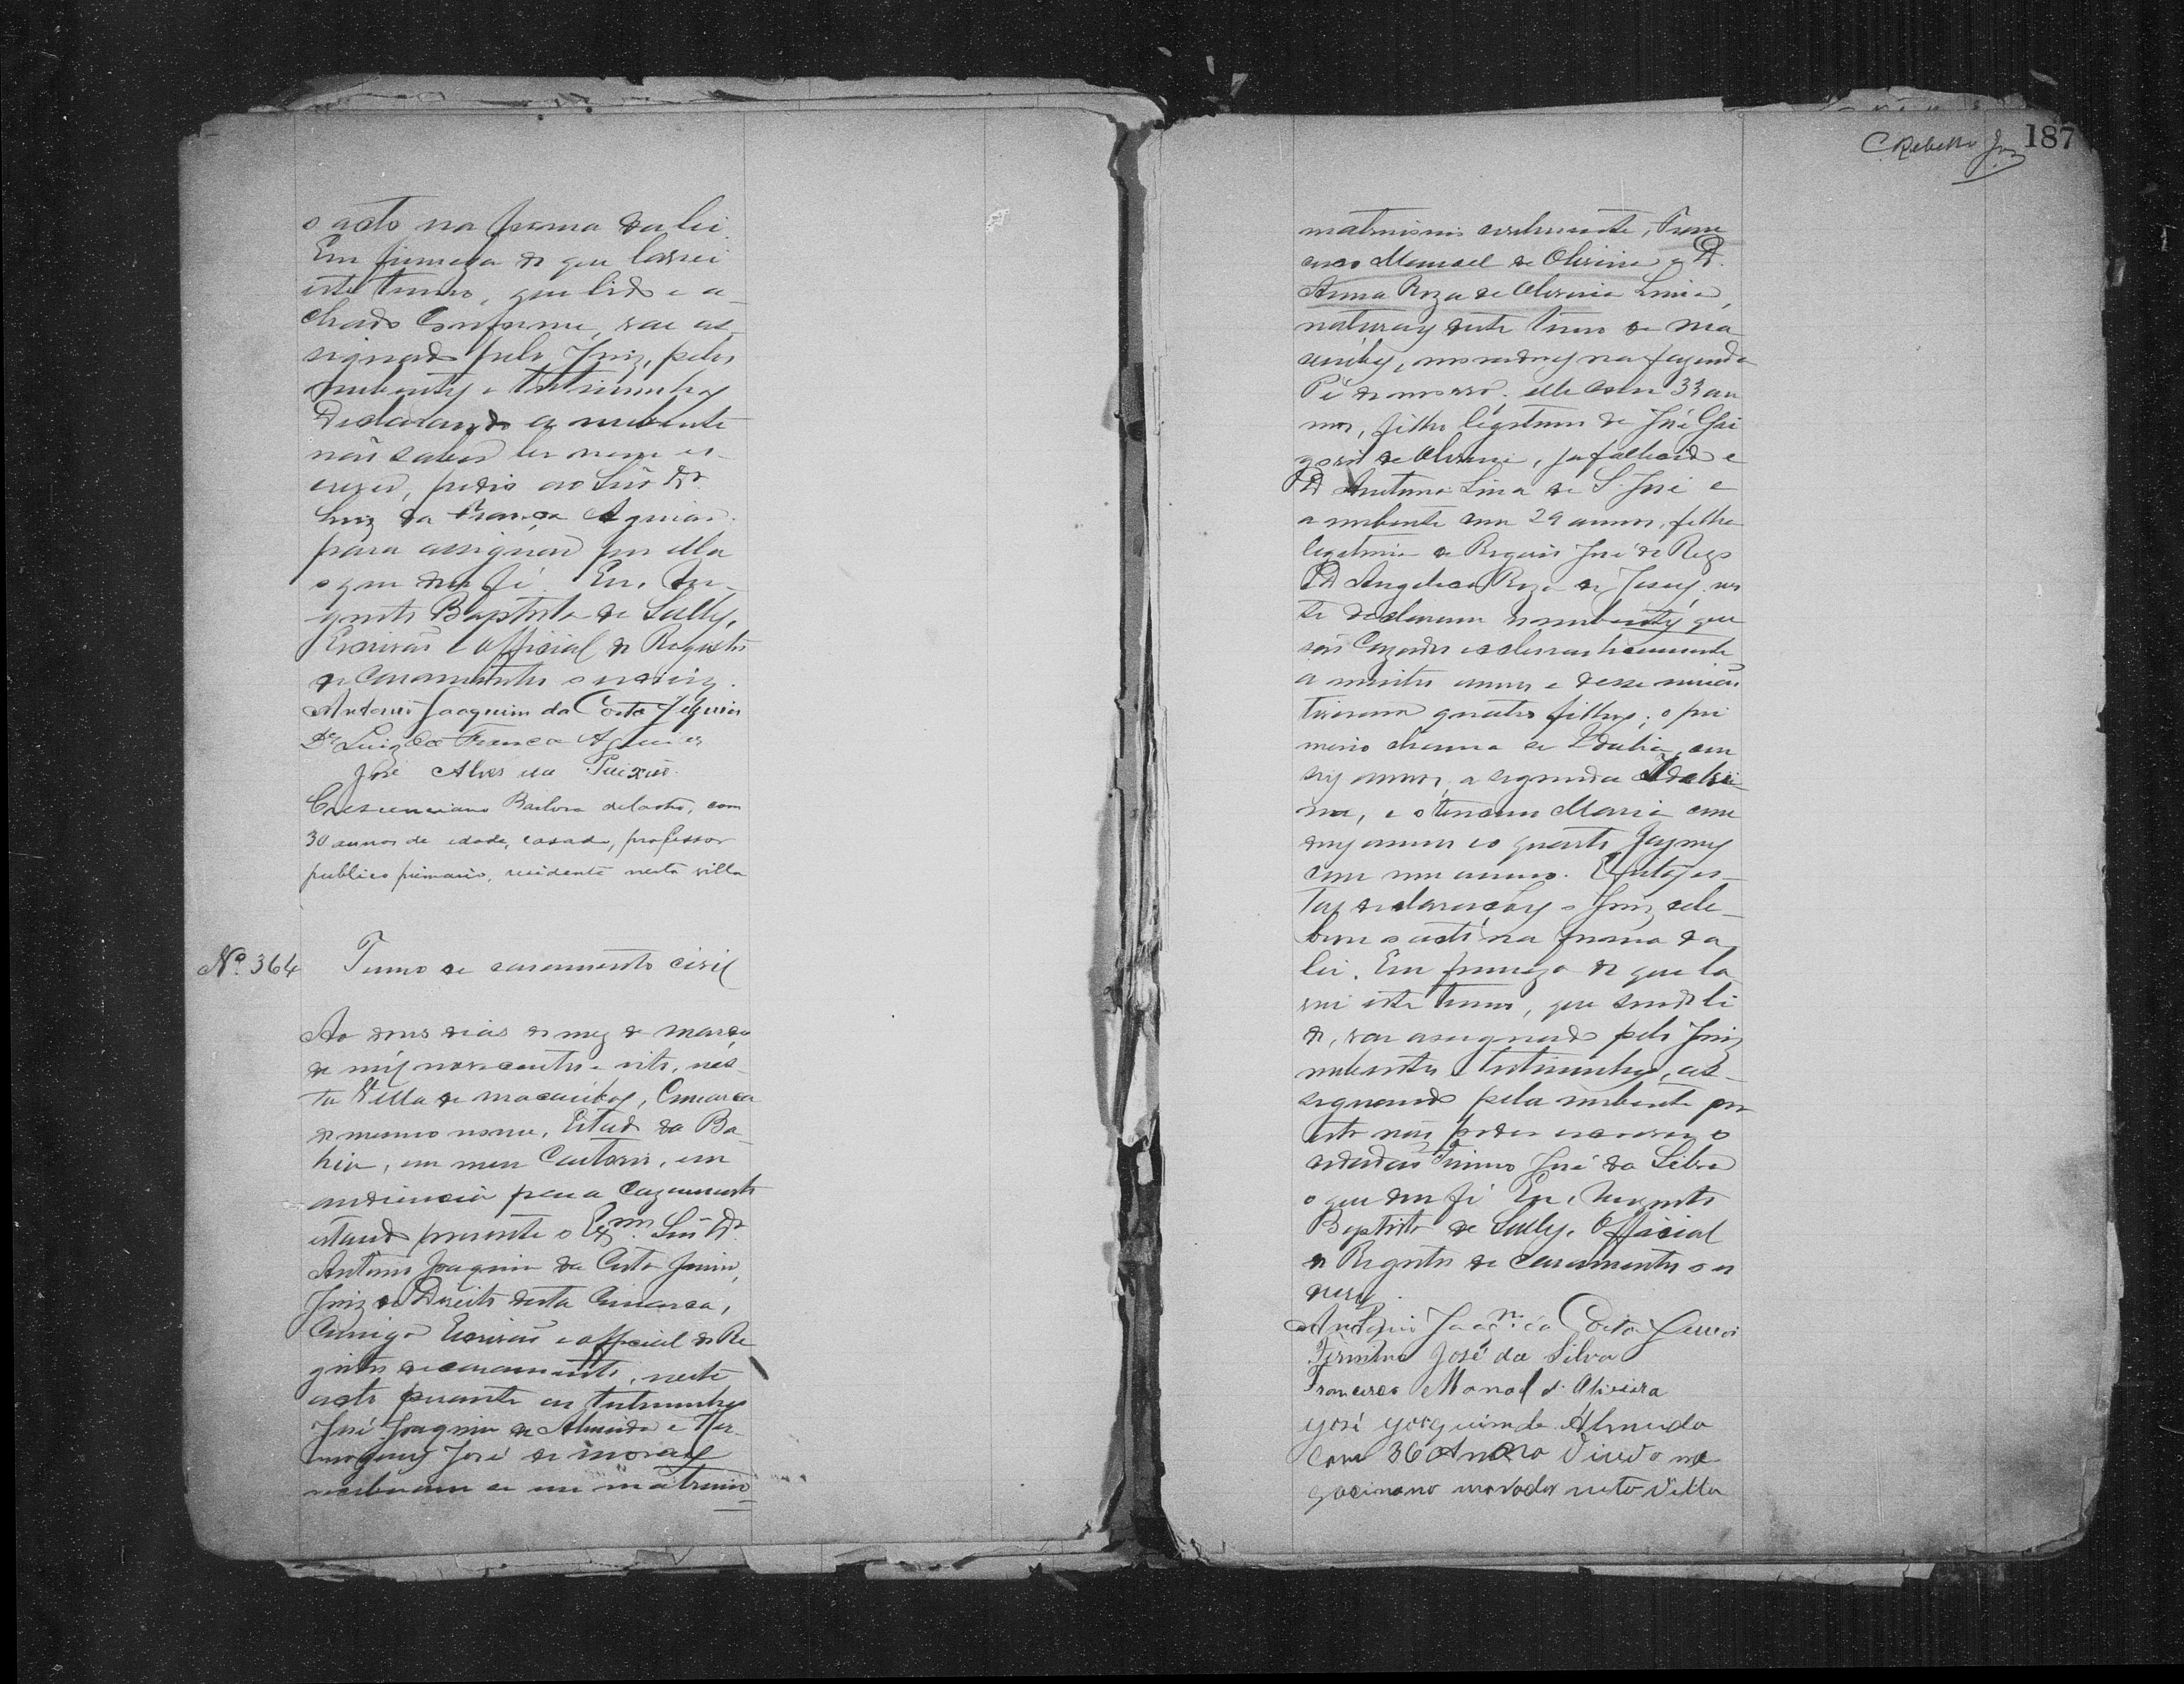 o acto na forma da lei
Em firmeza do que lavrei
este termo, que lido e a-
chado conforme, vae as-
signado pelo Juiz, pelos
nubentes e testimunhas
Declarando a nubente
não saber ler nem es-
crever, pedio ao Snr. Dr.
Luiz da França Aguiar
para assignar por ella
o que dou fé. Eu, Au-
gusto Baptista de Sully,
Escrivão e official do Registro
de Casamentos o escrevy.
Antonio Joaquim da Costa
Dr. Luiz da França Aguiar
José Alves da Paixão.
Crescenciano Barbosa de Castro, com
30 annos de edade, casado, professor
publico primario, residente nesta villa
Nº 364 Termo de casamento civil
Ao dous dias do mez de março
de mil novecentos e oito, nes-
ta Villa de Macaúbas, Comarca
do mesmo nome, Estado da Ba-
hia, em meu Cartorio, em
audiencia para cazamento
estando presente o Exmo. Snr. Dr.
Antonio Joaquim da Costa
Juiz de Direito desta Comarca,
Comigo Escrivão e official do Re
gistro de casamento, neste
acto perante as testimunhas
José Joaquim de Almeida e Her-
mogenes José de Moraes
receberam-se em matrimo-
C. Rebello Jor 187
matrimonio civilmente, Fran
cisco Manoel de Oliveira e D.
Anna Roza de Oliveira Lima,
naturaes deste termo de Ma
caúbas, moradores na fazenda
Pé do morro, elle com 33 an
nos, filho legitimo de José Gri
gorio de Oliveira, ja fallecido e
D. Antonia Lina de S. José e
a nubente com 29 annos, filha
legitima de José do Rego
e D. Angelica Roza de Jesus, nes
te declaram os nubentes que
são Cazados ecclesiasticamente
a muitos annos e desse união
tiveram quatro filhos; o pri
meiro chama-se Idalia com
seis annos, a segunda Idalsi
na, e o terceiro Maria com
dois annos e o quarto Jaymes
com um anno. Feitas es-
tas declarações o Juiz cele-
brou o acto na forma da
lei. Em firmeza do que la
vrei este termo, que sendo li
do, vae assignado pelo Juiz
nubentes e testimunhas, as-
signando pela nubente por
esta não poder escrever o
cidadão Firmino José da Silva
o que dou fé Eu, Augusto
Baptista de Sully, Official
do Registro de Casamentos o es
crevy.
Antonio Joaqm. da Costa
Firmino José da Silva
Francisco Manoel d. Oliveira
José Yoaquim de Almeida
com 36 Annos Viuvo ne
gociano morador nesta Villa